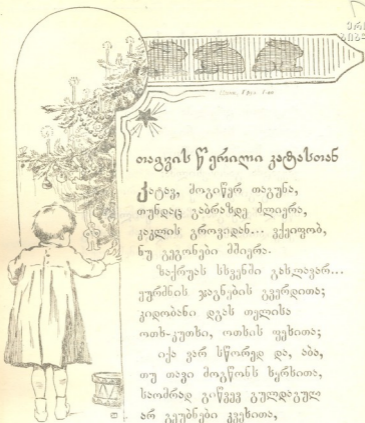 თაგვის წერილი კატასთან
კატავ, მოგიწერ თაგუნა,
თუნდაც გაბრაზდე ძლიერა,
კაკლის გროვიდან... ვქეიფობ,
ნუ გეგონები მშიერა.
ზაქრუას სხვენში გახლავარ...
ყურძნის ჯაგნების გვერდითა;
კიდობანი დგას თელისა
ოთხ-კუთხი, ოთხის ფეხითა;
იქა ვარ სწორედ და, აბა,
თუ თავი მოგწონს ხერხითა,
საომრად გიწვევ გულდაგულ
არ გეუბნები კვეხითა,